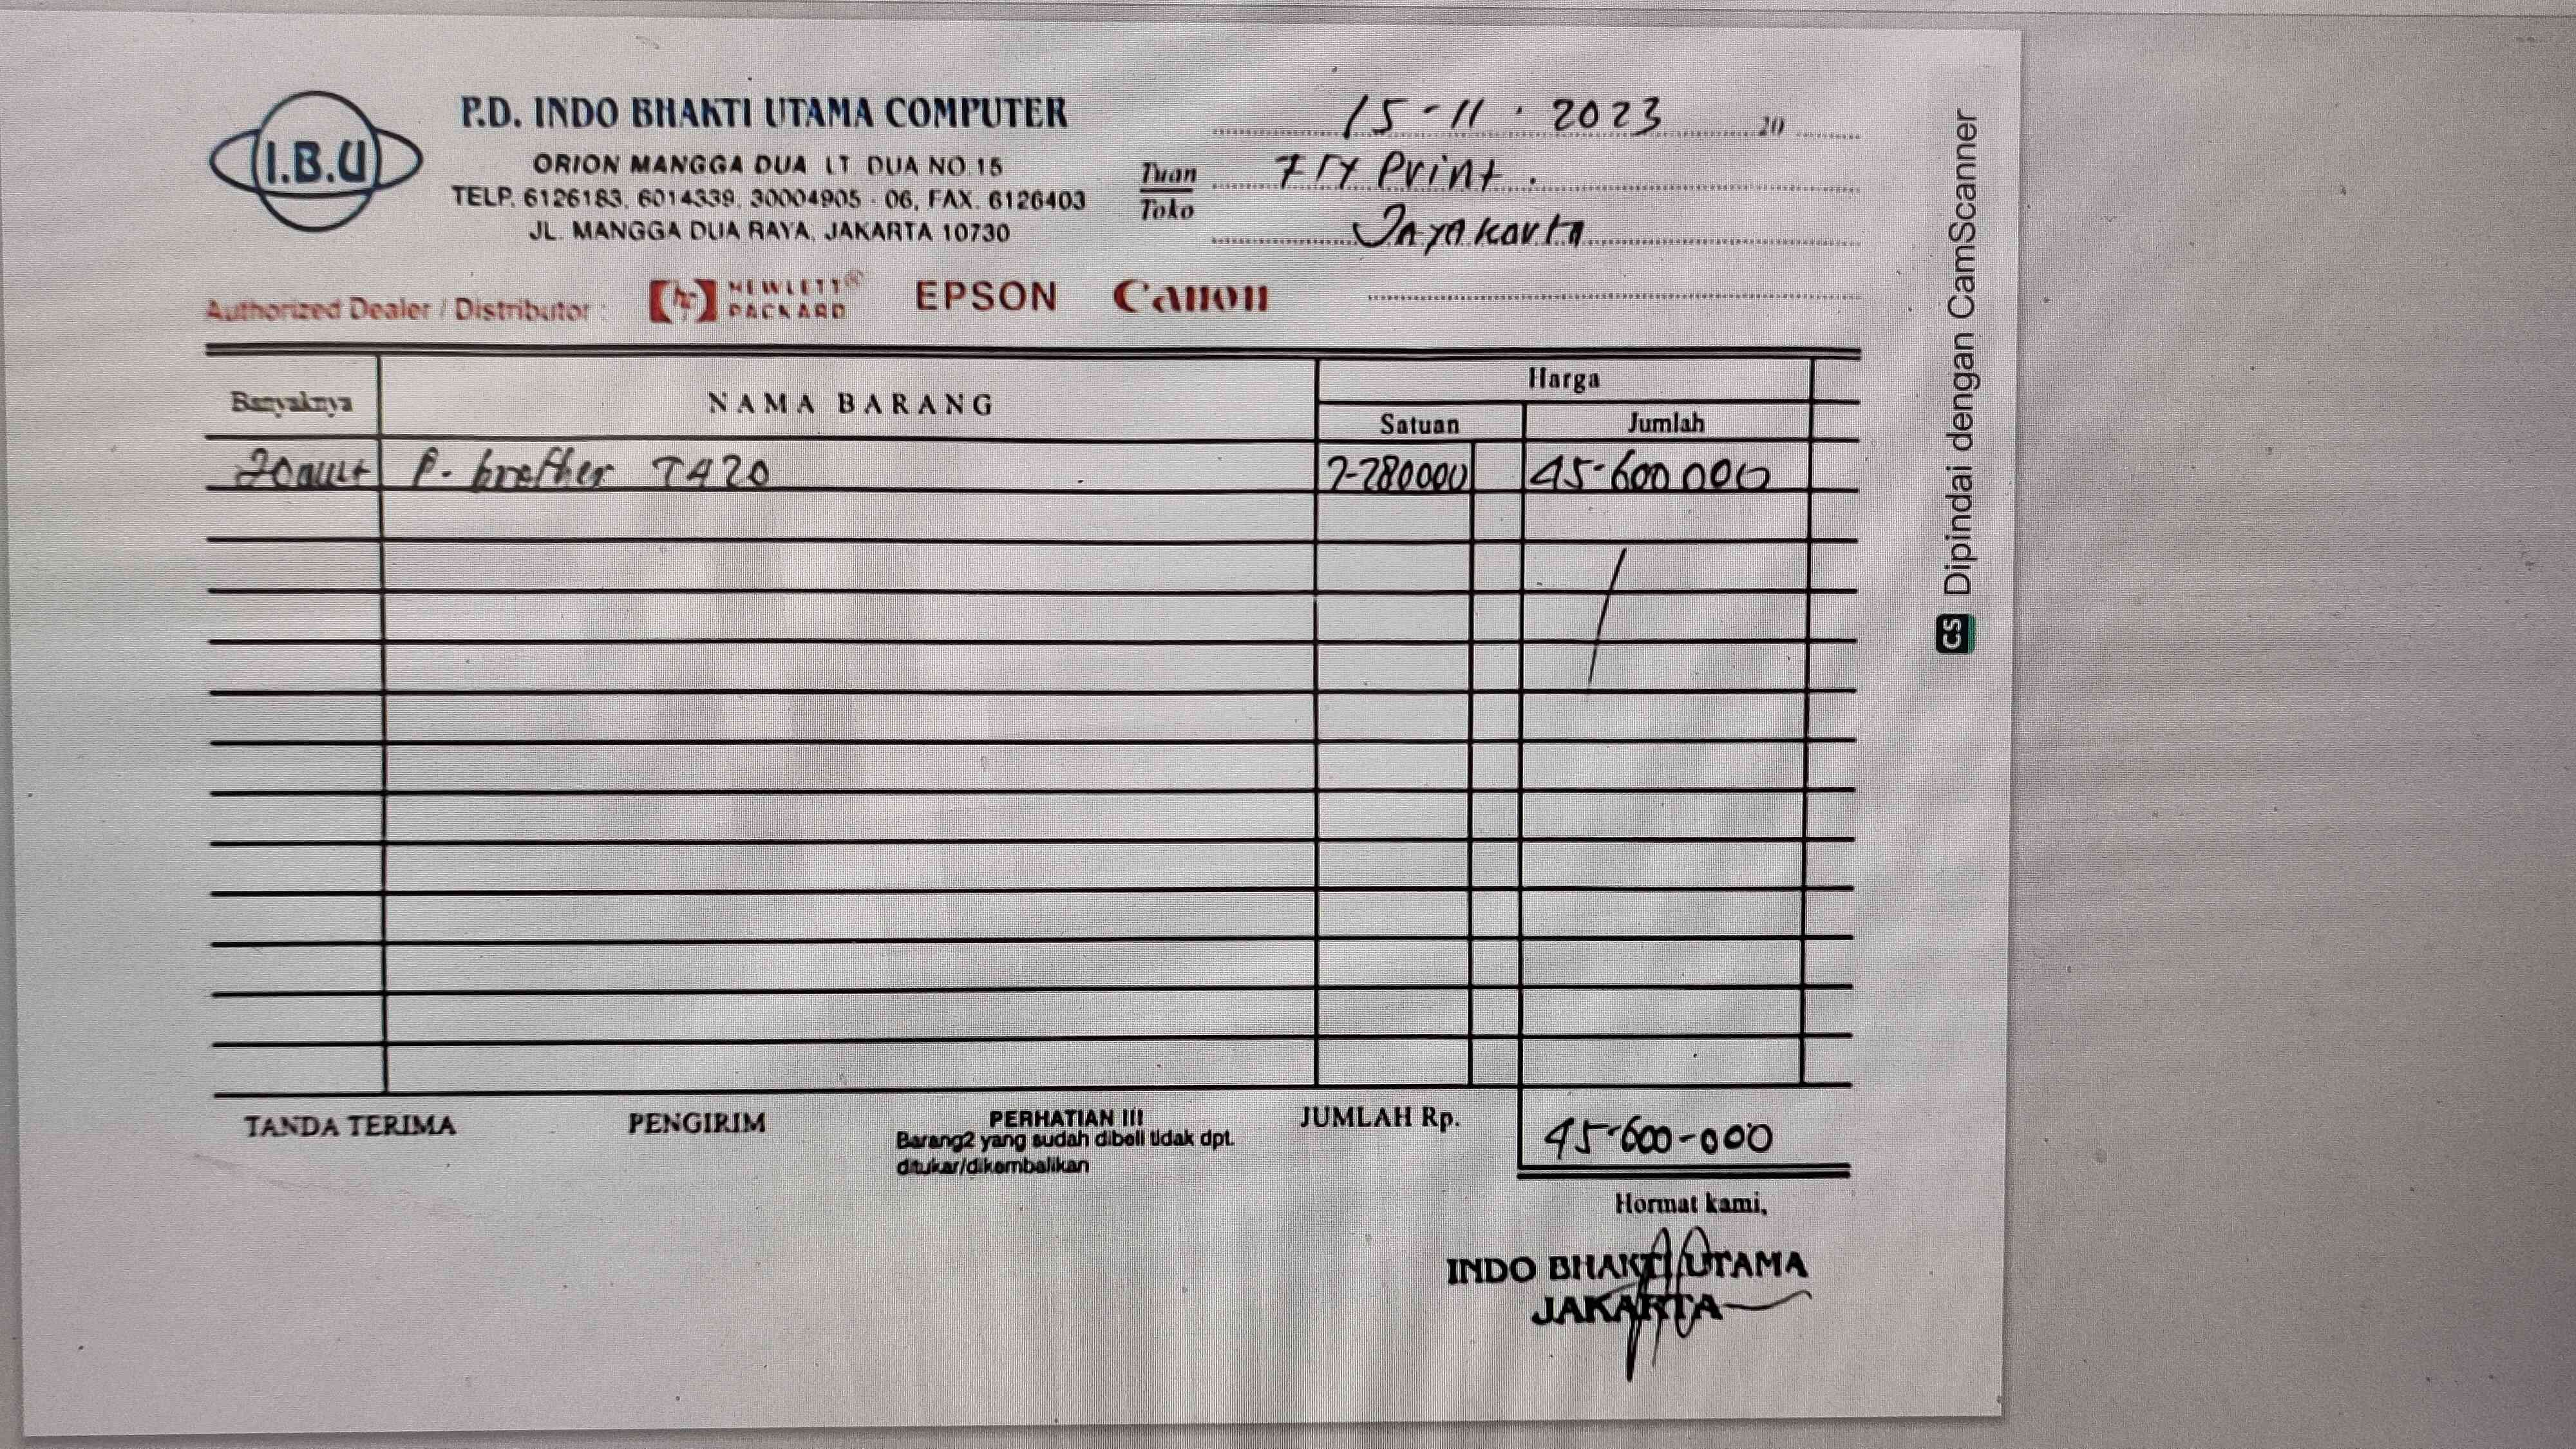 I.B.U
P.D. INDO BHAKTI UTAMA COMPUTER
ORION MANGGA DUA LT. DUA NO.15
TELP. 6126183, 6014339, 30004905 - 06, FAX. 6126403
JL. MANGGA DUA RAYA, JAKARTA 10730
15-11.2023 20
Tuan
Toko
Print.
Jayakarta
Authorized Dealer / Distributor :
hp HEWLETT® PACKARD
EPSON
Canon
Banyaknya
NAMA BARANG
Harga
Satuan
Jumlah
20 P. brother T420 2-280000 45-600 000
TANDA TERIMA
PENGIRIM
PERHATIAN !!!
Barang2 yang sudah dibeli tidak dpt.
ditukar/dikembalikan
JUMLAH Rp.
45-600-000
Hormat kami,
INDO BHAKTI UTAMA
JAKARTA
CS Dipindai dengan CamScanner